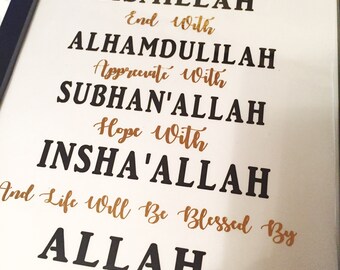 End With
ALHAMDULILAH
Appreciate With
SUBHAN'ALLAH
Hope With
INSHA'ALLAH
And Life Will Be Blessed By
ALLAH